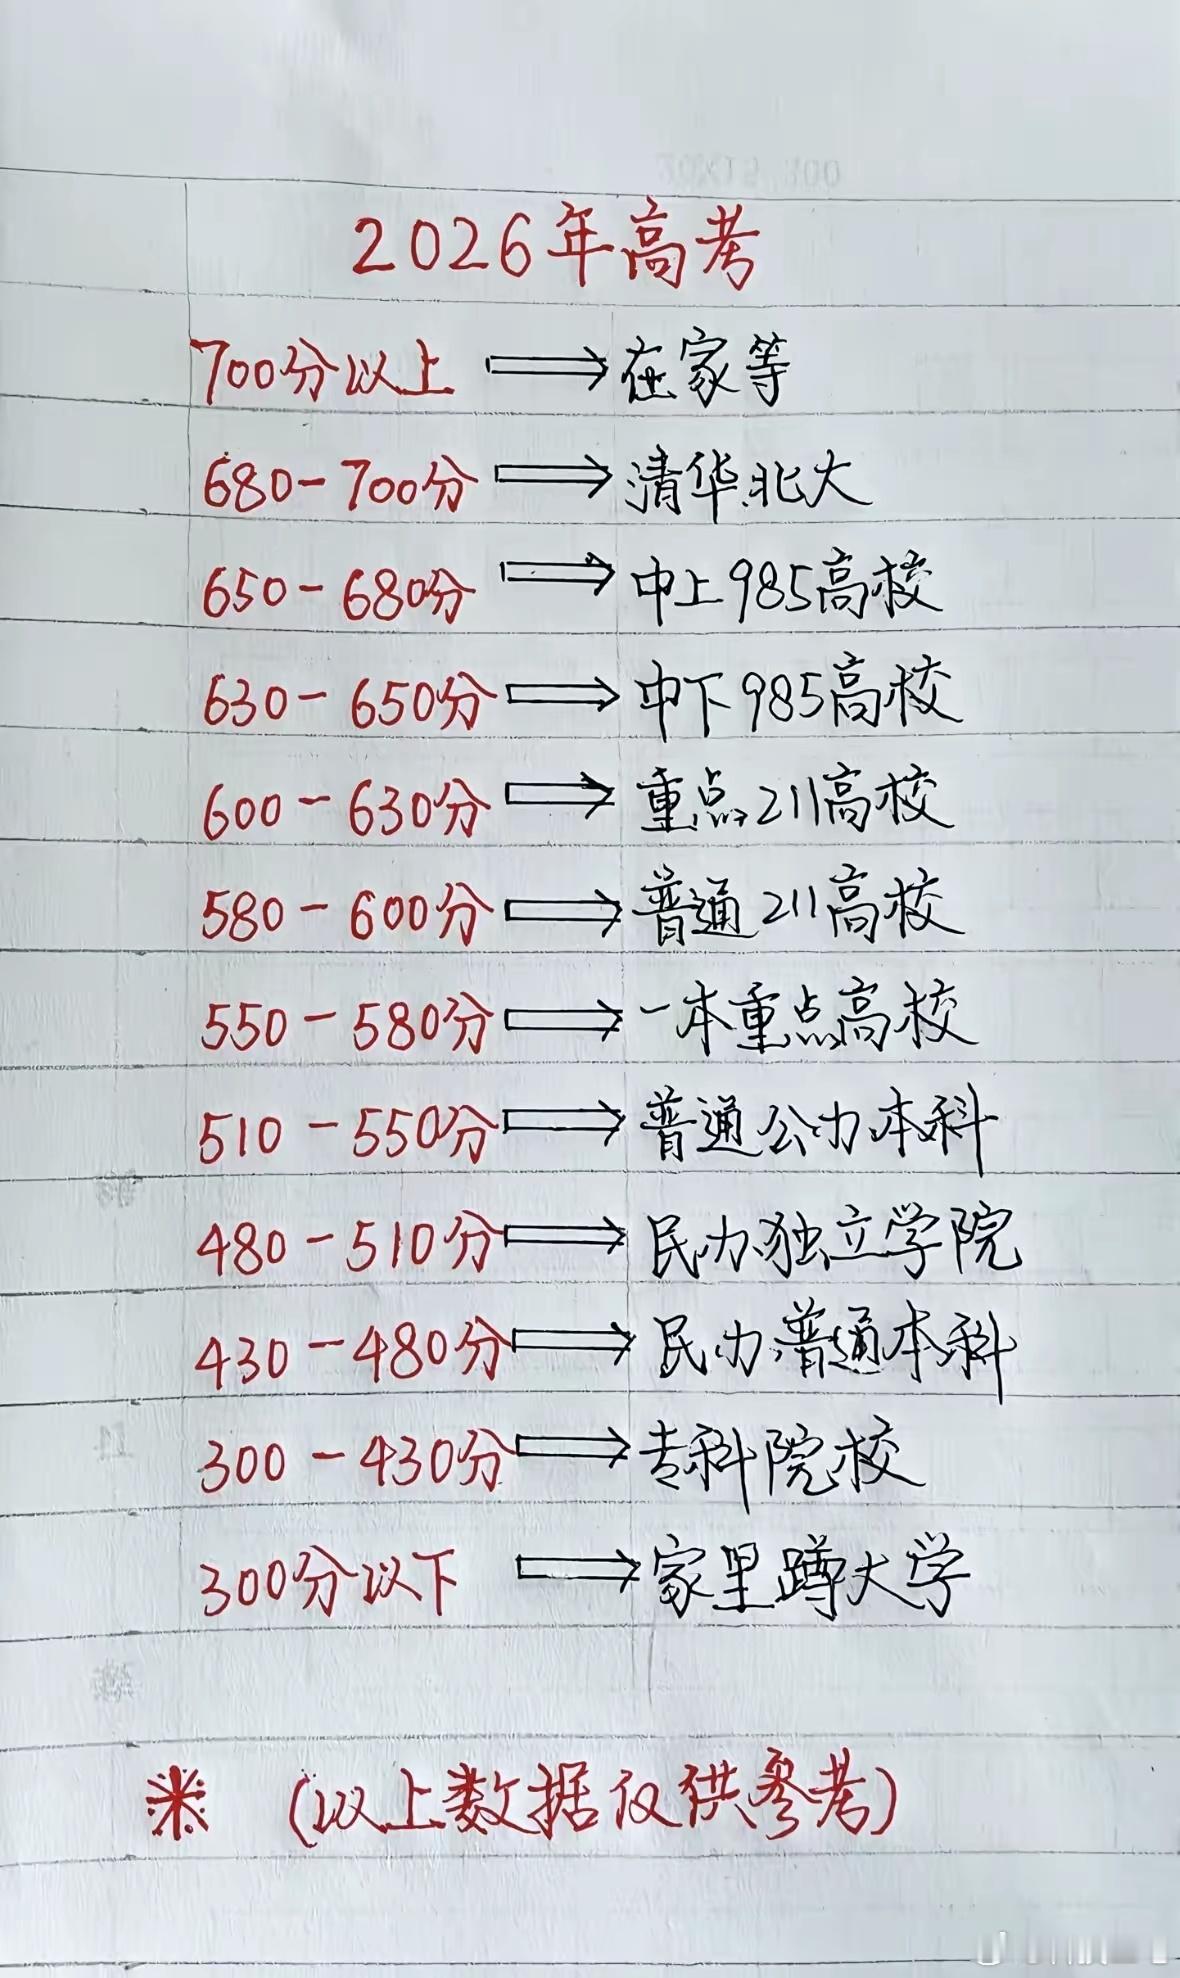 2026年高考
700分以上 ⟹ 在家等
680-700分 ⟹ 清华北大
650-680分 ⟹ 中上985高校
630-650分 ⟹ 中下985高校
600-630分 ⟹ 重点211高校
580-600分 ⟹ 普通211高校
550-580分 ⟹ 一本重点高校
510-550分 ⟹ 普通公办本科
480-510分 ⟹ 民办独立学院
430-480分 ⟹ 民办普通本科
300-430分 ⟹ 专科院校
300分以下 ⟹ 家里蹲大学
※ (以上数据仅供参考)